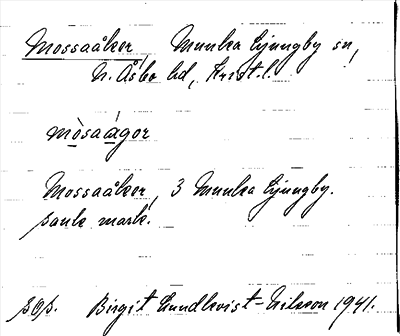 Mossaåker, Munka Ljungby sn,
N. Åsbo hd, Krist. l.
mòsaágor
Mossaåker, 3 Munka Ljungby.
sank mark.
sOs. Birgit Lundkvist-Nilsson 1941.